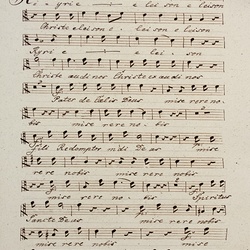 Ky - rie e lei son e leison
Christe eleison e - lei son e leison
Kyri e e - lei - son
Christe audi nos Christe ex audi nos
Pater de Cœlis Deus mise re re no -
bis mise re re no - bis
Fili Redemptor mi di De us mise
re re nobis mise re re nobis
mise re re no - bis Spiritus
Sancte De us mise re re nobis
mise re re no bis mise